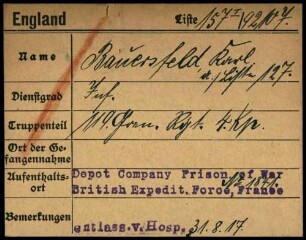 England Liste 157 I/92107.
Name Bauersfeld Karl
a./Liste 127.
Dienstgrad Inf.
Truppenteil 119 Gren. Rgt. 4. Kp.
Ort der Ge-
fangennahme
Aufenthalts-
ort
Depot Company Prison. of War
British Expedit. Force, France
Bemerkungen entlass. v. Hosp. 31.8.17.